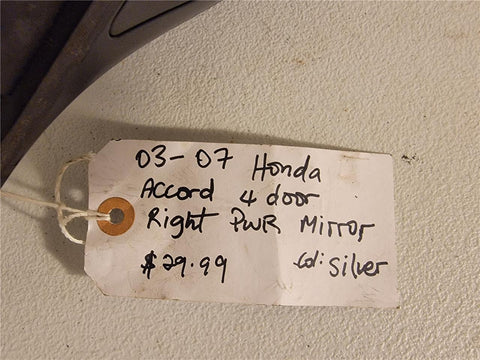 03-07 Honda
Accord 4 door
Right PWR Mirror
$29.99 Col: Silver